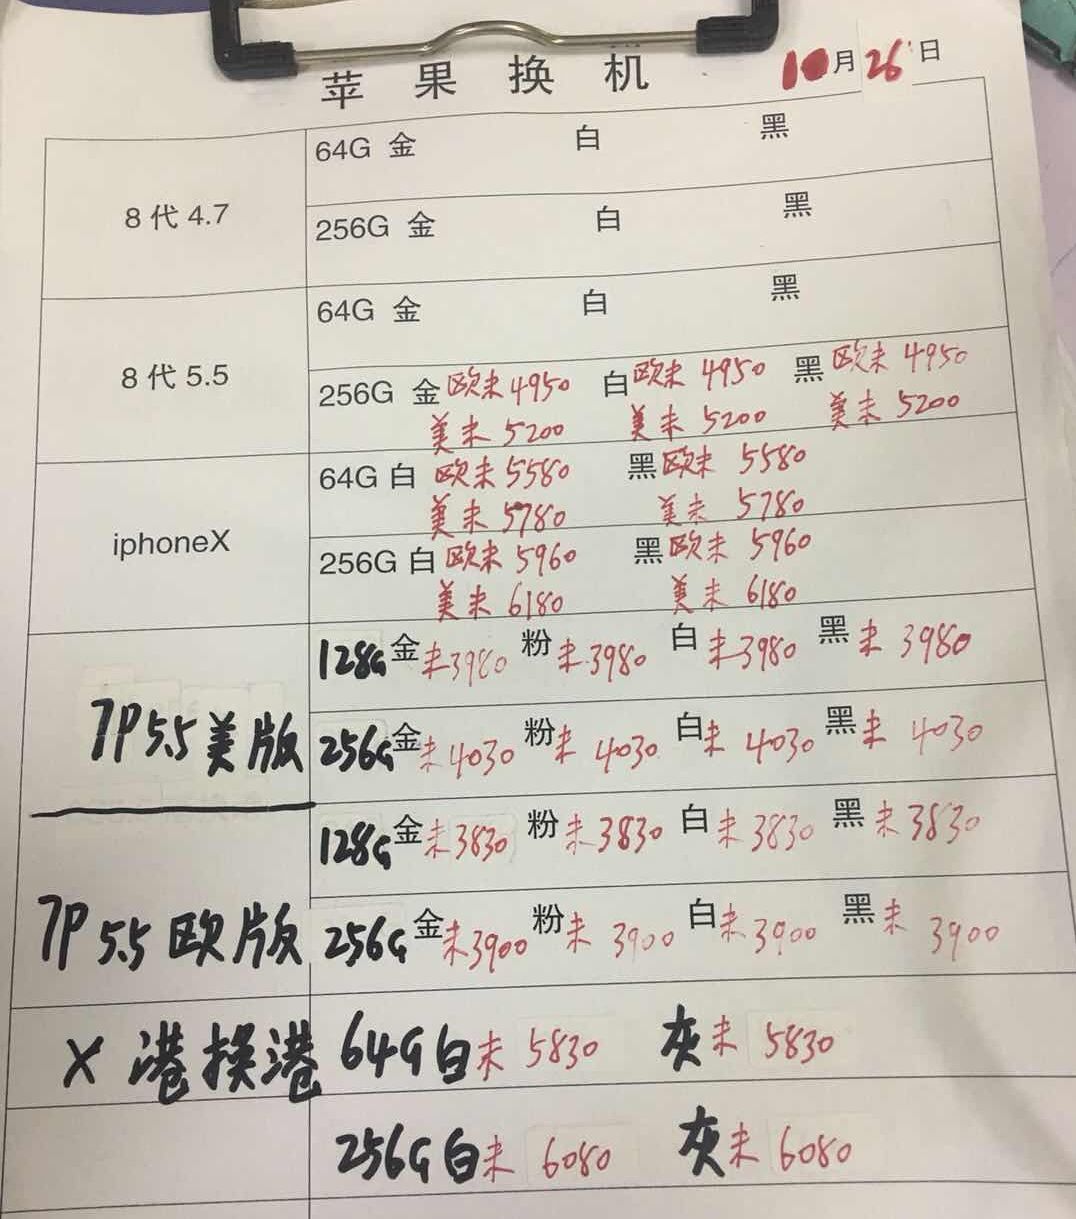 苹果换机 10月26日
8代4.7
64G 金 白 黑
256G 金 白 黑
8代5.5
64G 金 白 黑
256G 金欧未4950 白欧未4950 黑欧未4950
美未5200 美未5200 美未5200
iphoneX
64G 白 欧未5580 黑欧未5580
美未5780 美未5780
256G 白 欧未5960 黑欧未5960
美未6180 美未6180
7P5.5美版
128G金未3980 粉未3980 白未3980 黑未3980
256G金未4030 粉未4030 白未4030 黑未4030
7P5.5欧版
128G金未3830 粉未3830 白未3830 黑未3830
256G金未3900 粉未3900 白未3900 黑未3900
X港换港 64G白未5830 灰未5830
256G白未6080 灰未6080